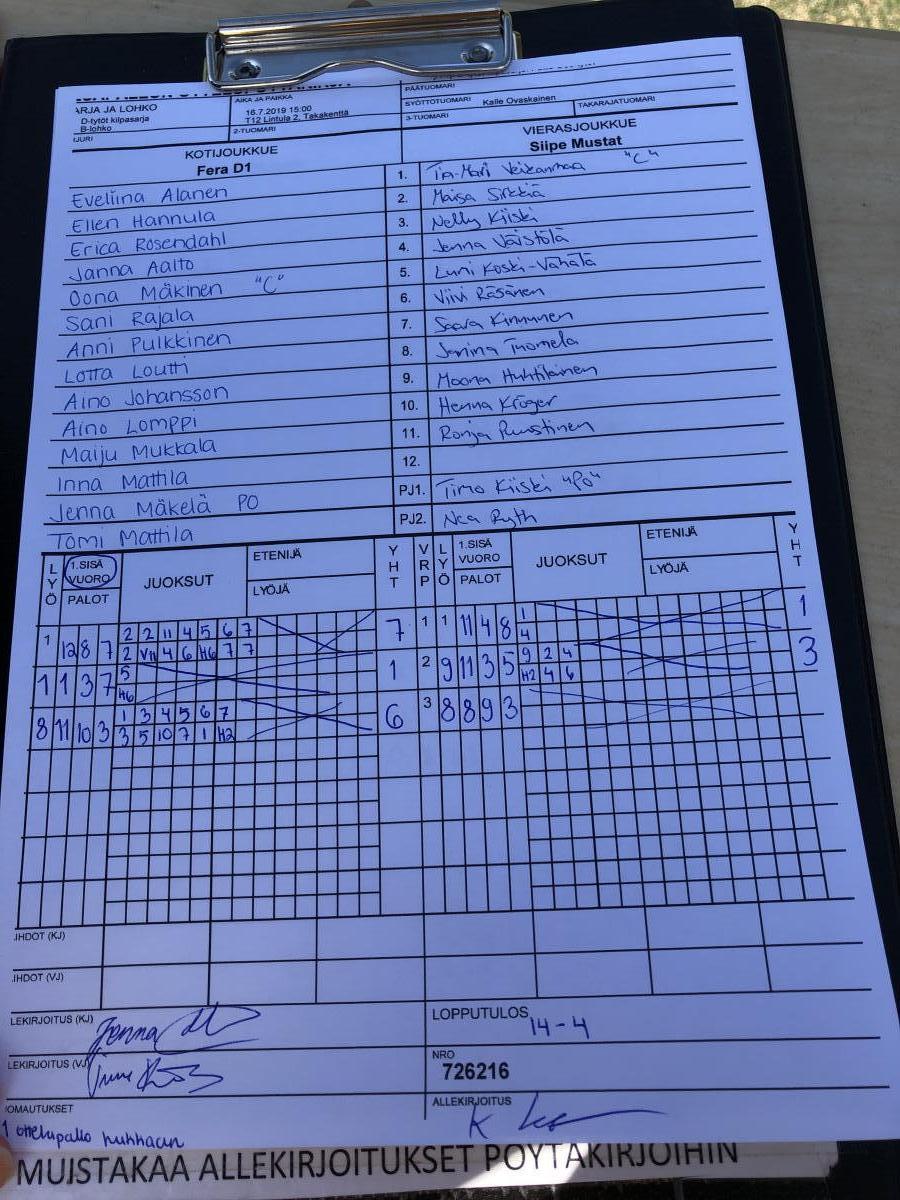 ARJA JA LOHKO
D-tytöt kilpasarja
B-lohko
AIKA JA PAIKKA
16.7.2019 15:00
T12 Lintula 2, Takakenttä
2-TUOMARI
PÄÄTUOMARI
SYÖTTÖTUOMARI Kalle Ovaskainen
3-TUOMARI
TAKARAJATUOMARI
KOTIJOUKKUE
Fera D1
VIERASJOUKKUE
Siipe Mustat
Eveliina Alanen
Ellen Hannula
Erica Rosendahl
Janna Aalto
Oona Mäkinen "C"
Sani Rajala
Anni Pulkkinen
Lotta Loutti
Aino Johansson
Aino Lomppi
Maiju Mukkala
Inna Mattila
Jenna Mäkelä PO
Tomi Mattila
1. Tia-Mari "C"
2. Maisa Sirkkiä
3. Nelly Kiiski
4. Jenna Väistölä
5. Luni Koski-Vähälä
6. Viivi Räsänen
7. Saara Kinnunen
8. Janina Tuomela
9. Moona Huhtilainen
10. Henna Kröger
11. Ronja Ruustinen
12.
PJ1. Timo Kiiski "PO"
PJ2. Nea Ryth
LYÖ 1.SISÄ VUORO PALOT JUOKSUT ETENIJÄ LYÖJÄ YHT VRP LYÖ 1.SISÄ VUORO PALOT JUOKSUT ETENIJÄ LYÖJÄ YHT
1 12 8 7 2 2 11 4 5 6 7 7 1 1 11 4 8 1 1
2 V11 4 6 H6 7 7 4
1 1 3 7 5 1 2 9 11 3 5 9 2 4 3
H6 H2 4 6
8 11 10 3 1 3 4 5 6 7 6 3 8 8 9 3
3 5 10 7 1 H2
IHDOT (KJ)
IHDOT (VJ)
LEKIRJOITUS (KJ) Jenna
LEKIRJOITUS (VJ)
LOPPUTULOS 14-4
NRO
726216
ALLEKIRJOITUS
OMAUTUKSET
1 ottelupallo hukkaan
MUISTAKAA ALLEKIRJOITUKSET PÖYTÄKIRJOIHIN